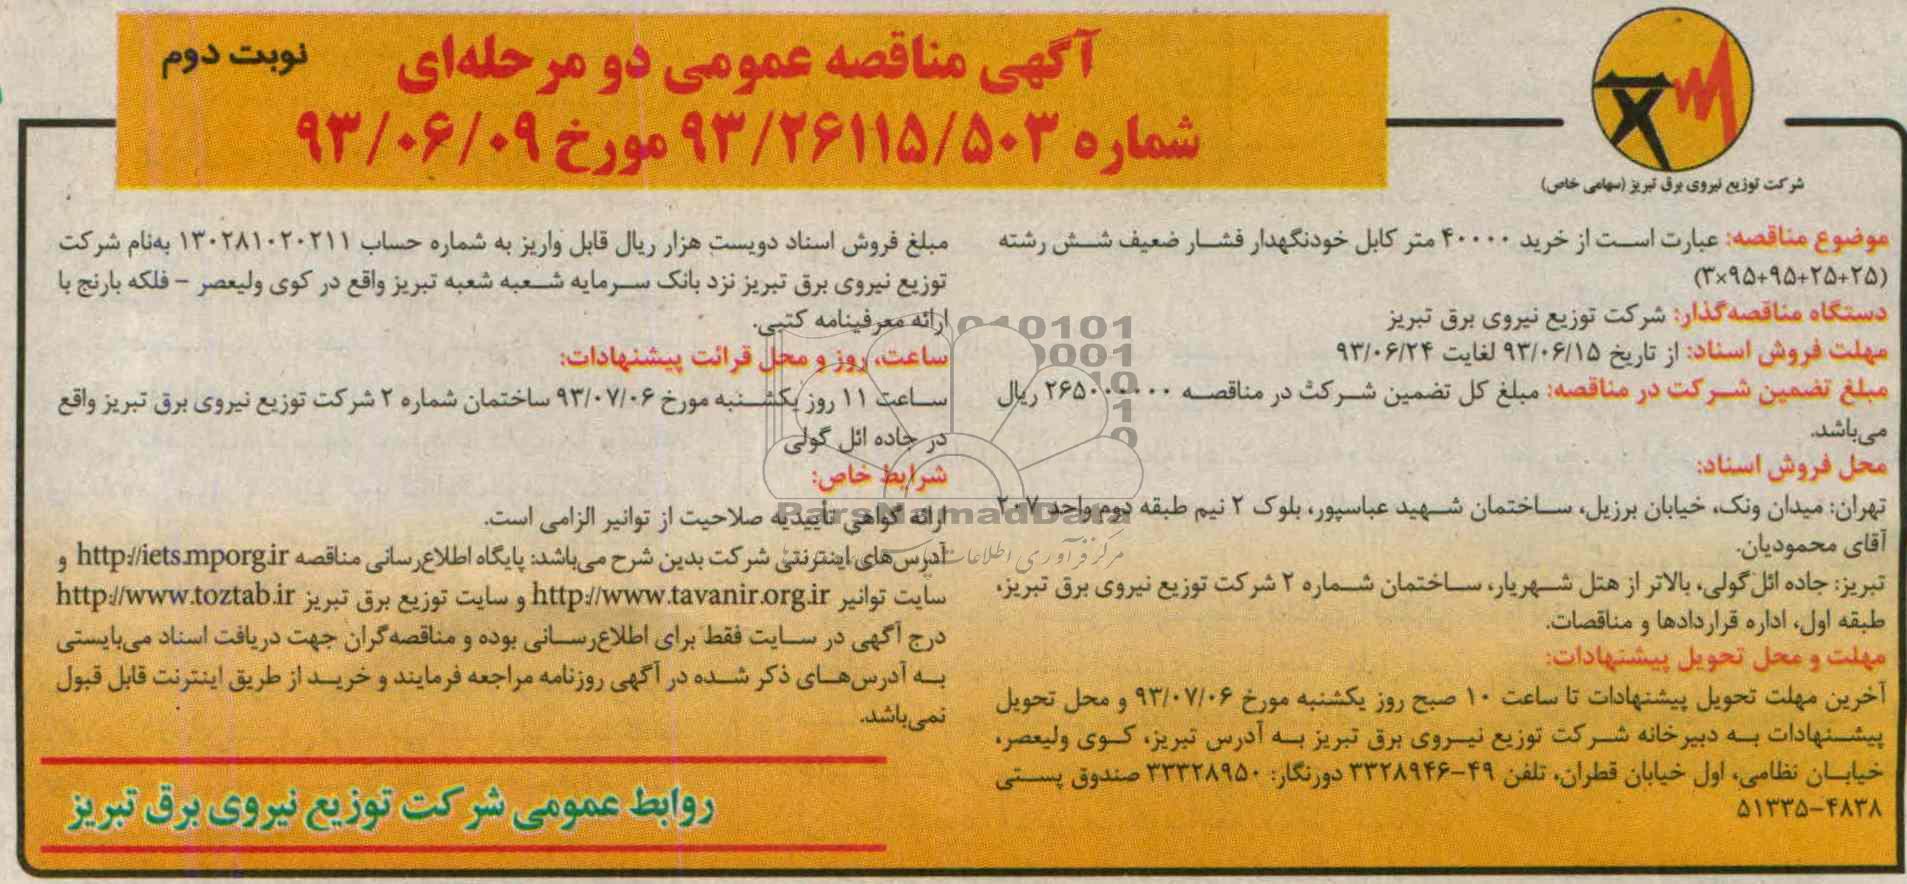 آگهی مناقصه عمومی دو مرحله‌ای
نوبت دوم
شماره ۹۳/۲۶۱۱۵/۵۰۳ مورخ ۹۳/۰۶/۰۹
شرکت توزیع نیروی برق تبریز (سهامی خاص)
موضوع مناقصه: عبارت است از خرید ۴۰۰۰۰ متر کابل خودنگهدار فشار ضعیف شش رشته
(۳×۹۵+۹۵+۲۵+۲۵)
دستگاه مناقصه‌گذار: شرکت توزیع نیروی برق تبریز
مهلت فروش اسناد: از تاریخ ۹۳/۰۶/۱۵ لغایت ۹۳/۰۶/۲۴
مبلغ تضمین شرکت در مناقصه: مبلغ کل تضمین شرکت در مناقصه ۲۶۵۰۰۰۰۰۰ ریال
می‌باشد.
محل فروش اسناد:
تهران: میدان ونک، خیابان برزیل، ساختمان شهید عباسپور، بلوک ۲ نیم طبقه دوم واحد ۲۰۷
آقای محمودیان.
تبریز: جاده ائل‌گولی، بالاتر از هتل شهریار، ساختمان شماره ۲ شرکت توزیع نیروی برق تبریز،
طبقه اول، اداره قراردادها و مناقصات.
مهلت و محل تحویل پیشنهادات:
آخرین مهلت تحویل پیشنهادات تا ساعت ۱۰ صبح روز یکشنبه مورخ ۹۳/۰۷/۰۶ و محل تحویل
پیشنهادات به دبیرخانه شرکت توزیع نیروی برق تبریز به آدرس تبریز، کوی ولیعصر،
خیابان نظامی، اول خیابان قطران، تلفن ۴۹-۳۳۲۸۹۴۶ دورنگار: ۳۳۳۲۸۹۵۰ صندوق پستی
۵۱۳۳۵-۴۸۳۸
مبلغ فروش اسناد دویست هزار ریال قابل واریز به شماره حساب ۱۳۰۲۸۱۰۲۰۲۱۱ به‌نام شرکت
توزیع نیروی برق تبریز نزد بانک سرمایه شعبه شعبه تبریز واقع در کوی ولیعصر – فلکه بارنج با
ارائه معرفینامه کتبی.
ساعت، روز و محل قرائت پیشنهادات:
ساعت ۱۱ روز یکشنبه مورخ ۹۳/۰۷/۰۶ ساختمان شماره ۲ شرکت توزیع نیروی برق تبریز واقع
در جاده ائل گولی
شرایط خاص:
ارائه گواهی تأییدیه صلاحیت از توانیر الزامی است.
آدرس‌های اینترنتی شرکت بدین شرح می‌باشد: پایگاه اطلاع‌رسانی مناقصه http://iets.mporg.ir و
سایت توانیر http://www.tavanir.org.ir و سایت توزیع برق تبریز http://www.toztab.ir
درج آگهی در سایت فقط برای اطلاع‌رسانی بوده و مناقصه‌گران جهت دریافت اسناد می‌بایستی
به آدرس‌های ذکر شده در آگهی روزنامه مراجعه فرمایند و خرید از طریق اینترنت قابل قبول
نمی‌باشد.
روابط عمومی شرکت توزیع نیروی برق تبریز
ParsNamadData